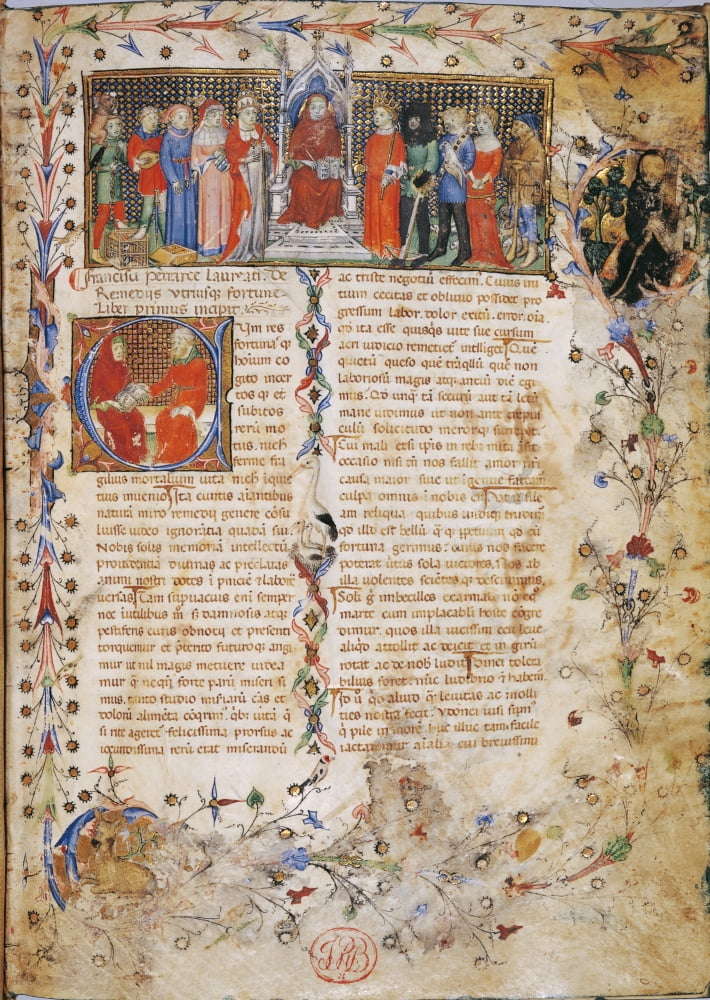 Francisci petrarce laureati. De
Remedijs utriusq; fortune
Liber primus incipit.
CUm res
fortunasq;
hoium co
gito incer
tos q; et
subitos
rerū mo
tus. nich
ferme fra
gilius mortalium uita nich iquie
tius inuenio. Ita cuntis aiantibus
natura miro remedij genere cōsu
luisse uideo ignorātia quadā sui.
Nobis solis memoriā intellectū
prouidentia diuinas ac preclaras
animi nostri dotes ī pniciē ⁊ laborē
uersas. Tam supuacuis eni semper
nec inutilibus m̄ s; damnosis atq;
pestiferis curis obnoxij et presenti
torquemur et p̄terito futuroq; angi
mur ut nil magis metuere uidea
mur q̄ neqn̄ forte parū miseri si
mus. tanto studio miseriarū cās et
doloris alimēta cōqrim. qb; uitā q̄
si rite ageret felicissima prorsus ac
iocundissima rerū erat miserandū
ac triste negotiū effecim. Cuius ini
tium cecitas et obliuio possidet pro
gressum labor. dolor exitū. error. oia
qd ita esse quisqs uite sue cursum
acri iudicio remetiet intelliget. Que
quietū queso que trāqllū que non
laboriosū magis atq; anxiū diē egi
mus. Qd unq tā securū aut tā letū
mane uidimus ut non ante crepus
culū solicitudo merorq;
Cui mali etsi ipis in reb; mltā sit
occasio nisi tn̄ nos fallit amor nri
causa maior siue ut īgenue fatear
culpa omnis ī nobis est. Vt sileā
am reliqua quibus undiq; urgem
qd illd est bellū q̄ qm ppetuum cū
fortuna gerimus. cuius nos facere
poterat ūtus sola uictores. nos ab
illa uolentes sciētes q; desciuimus.
Soli g̊ imbecilles exarmati nō eq̊
marte cum implacabli hoste cōgre
dimur. quos illa uicissim ceu leue
aliqd attollit ac deicit et in girū
rotat ac de nob ludit. Vinci tolera
bilius foret. nūc ludibrio ⁊ habem.
Id ū qd aliud q̄ leuitas ac molli
ties nostra fecit. Ydonei uisi sum
q̄ pile in more huc illuc tam facile
iactaremur aialia eui breuissimi